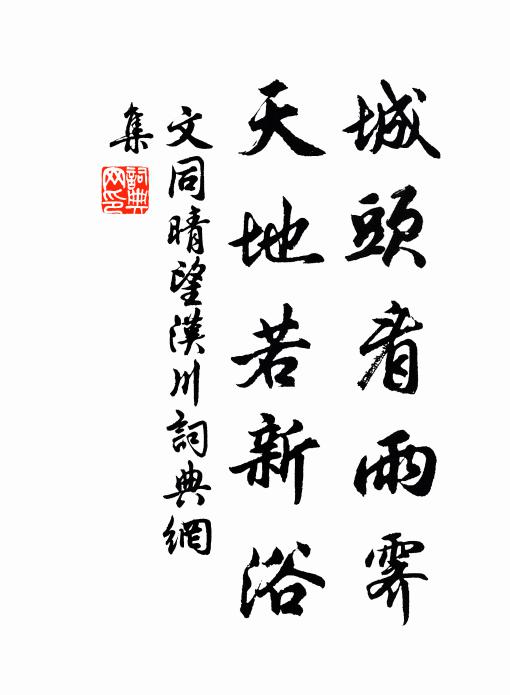 城頭看雨霽
天地若新浴
文同晴望漢川詞典網
集
詞典网印